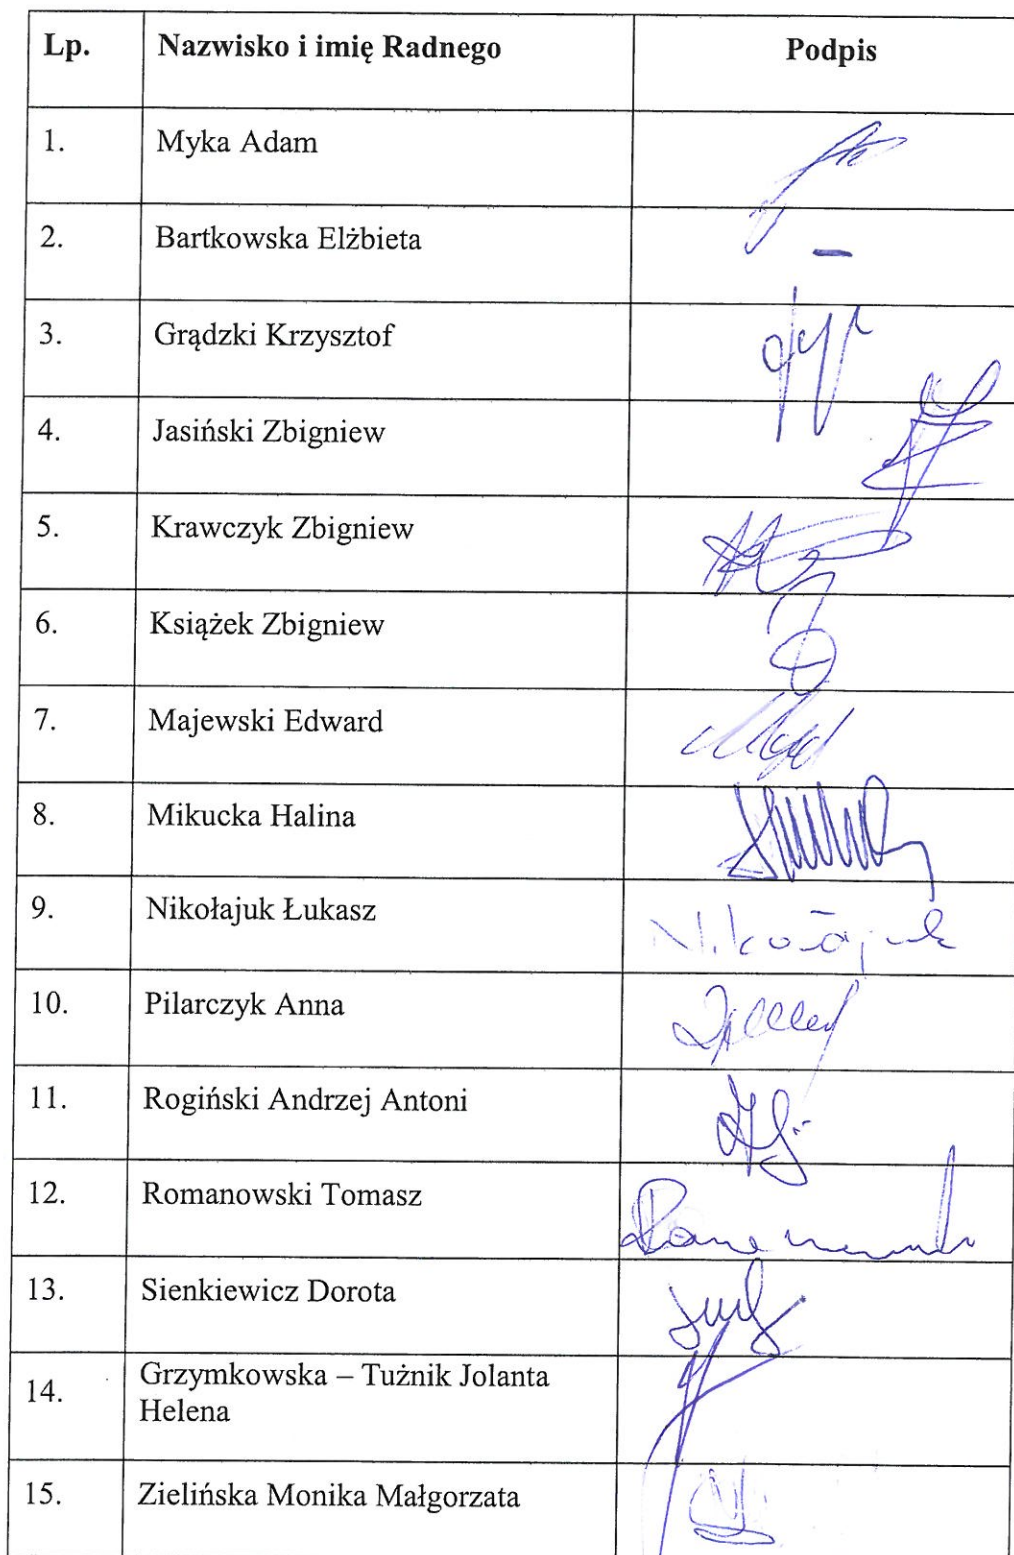 Lp. Nazwisko i imię Radnego Podpis
1. Myka Adam
2. Bartkowska Elżbieta –
3. Grądzki Krzysztof
4. Jasiński Zbigniew
5. Krawczyk Zbigniew
6. Książek Zbigniew
7. Majewski Edward
8. Mikucka Halina
9. Nikołajuk Łukasz Nikołajuk
10. Pilarczyk Anna
11. Rogiński Andrzej Antoni
12. Romanowski Tomasz
13. Sienkiewicz Dorota
14. Grzymkowska – Tużnik Jolanta
Helena
15. Zielińska Monika Małgorzata